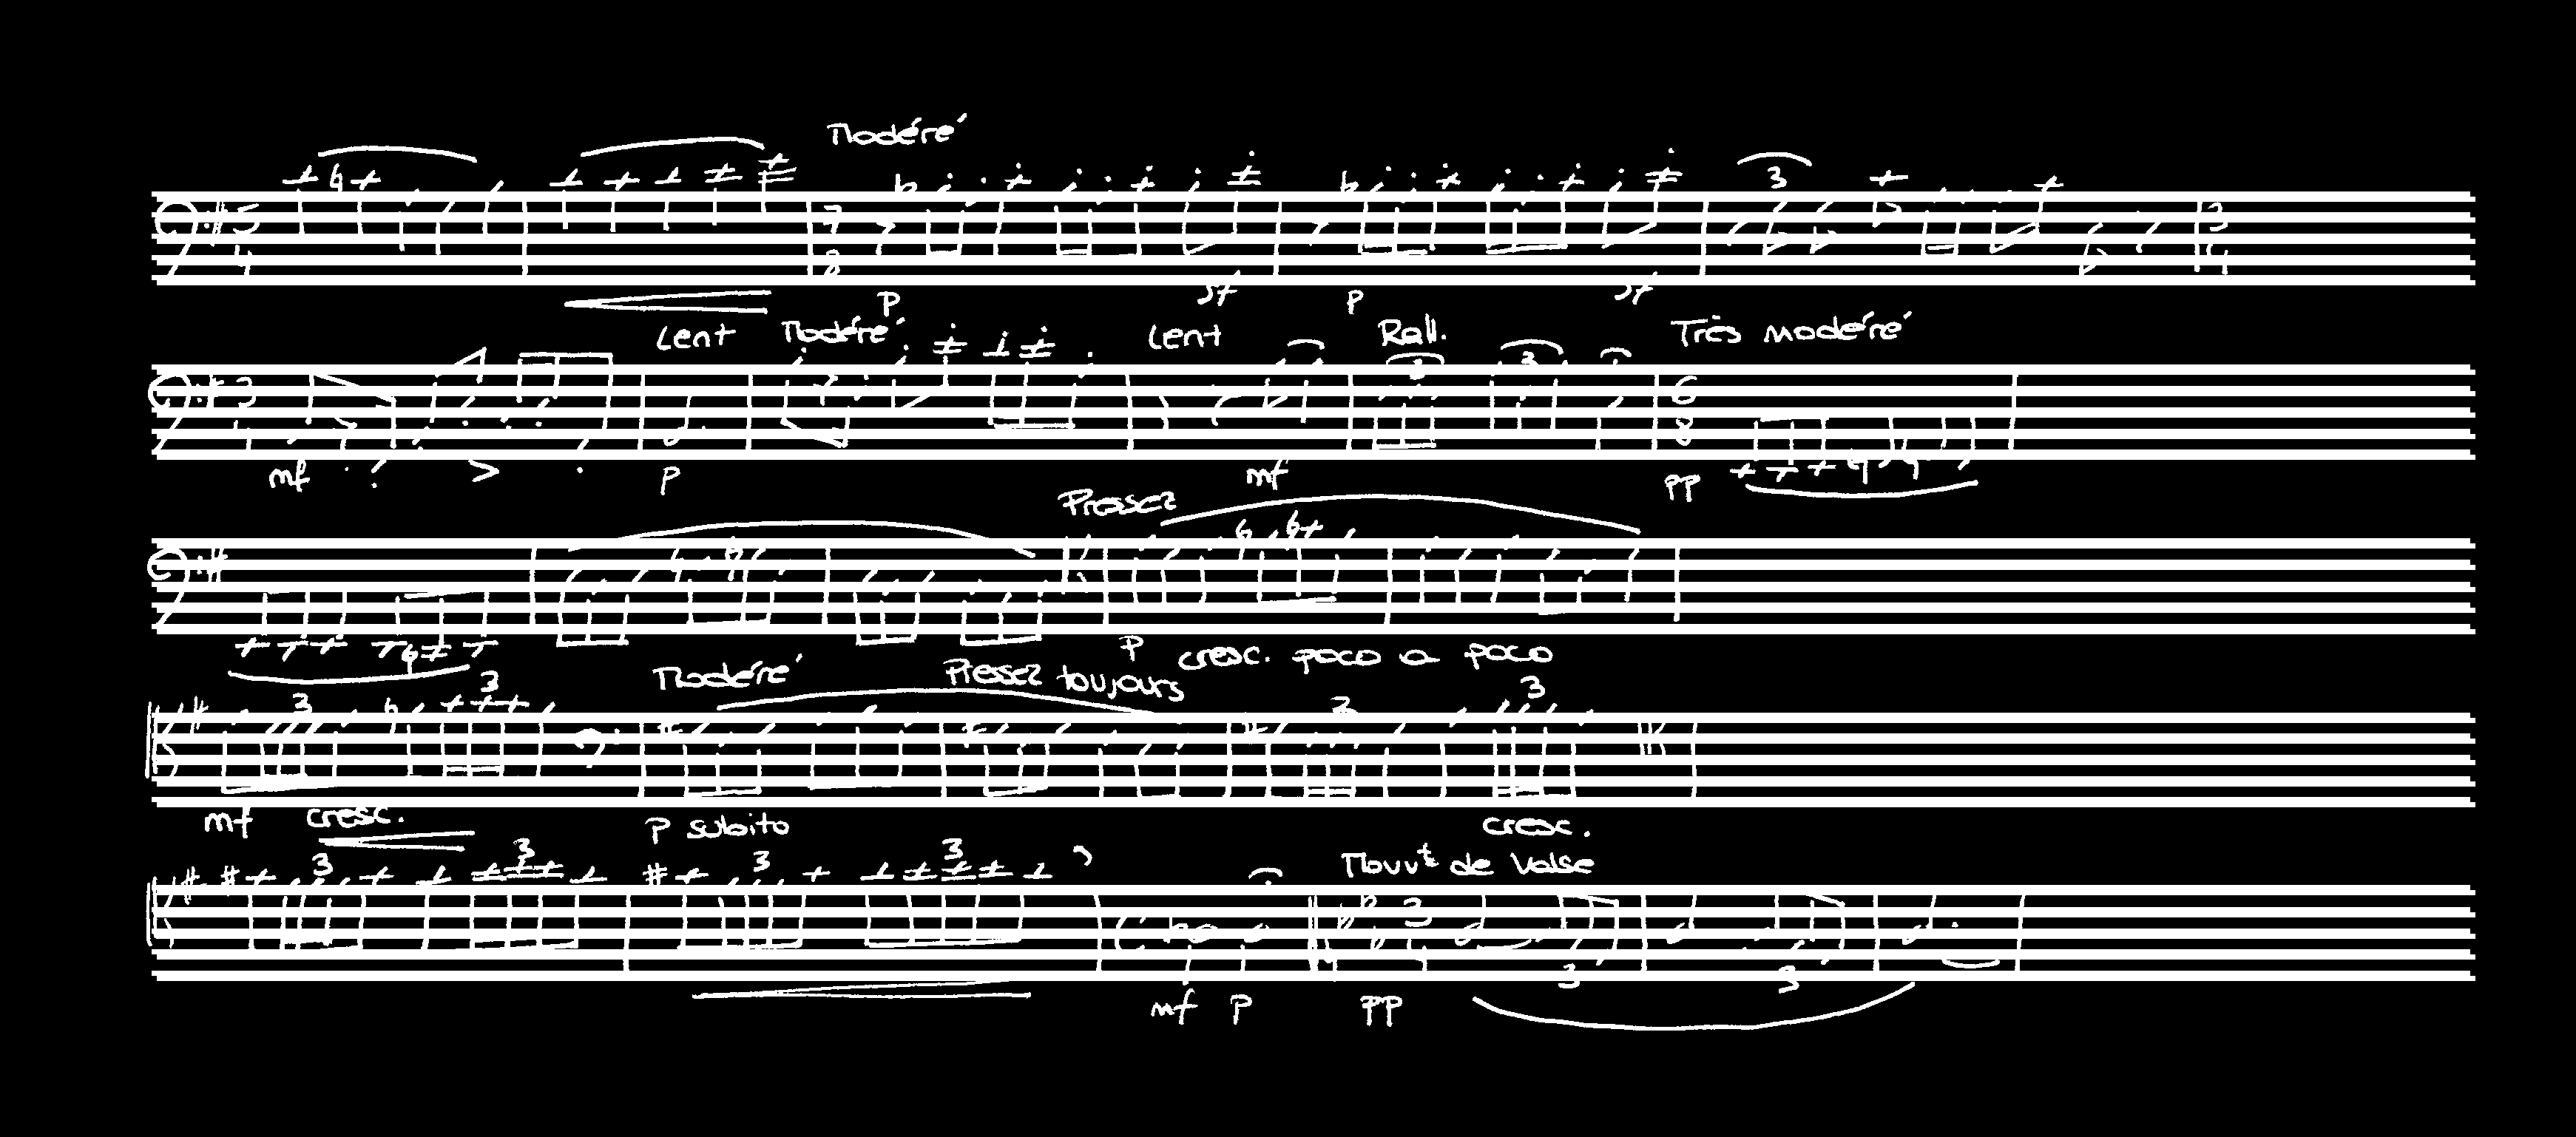 Modéré
3
5 7 3
4 8 4
p sf p sf
Lent Modéré Lent Rall. Très modéré
3 3
3 6
4 8
mf p mf pp
Pressez
p cresc. poco a poco
Modéré Pressez toujours
3 3 3 3
mf cresc. p subito cresc.
Mouvt de Valse
3 3 3 3
3
4
3 3
mf p pp